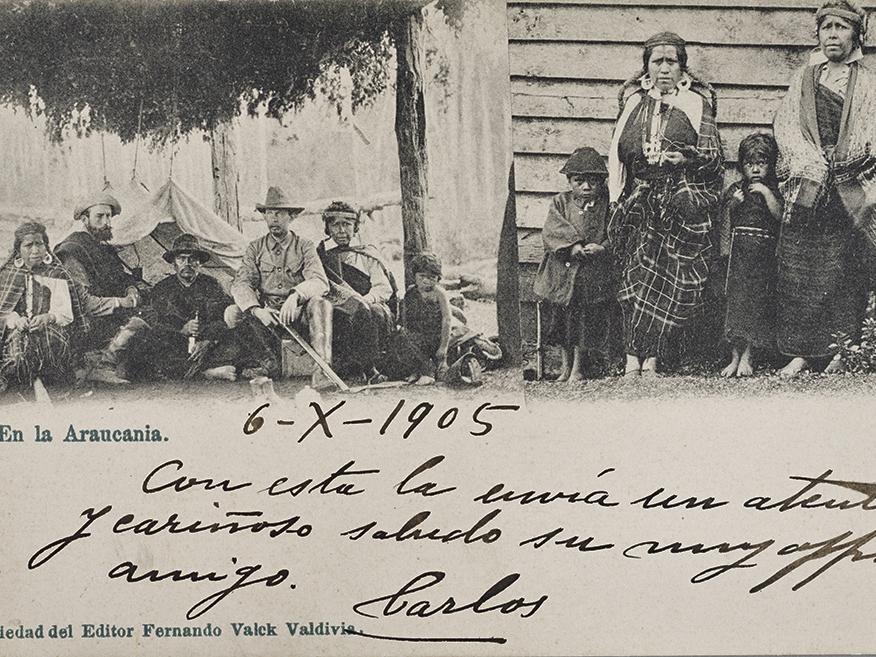 En la Araucania.
6-X-1905
Con esta la envía un atent
y cariñoso saludo su muy
amigo.
Carlos
iedad del Editor Fernando Valck Valdivia.